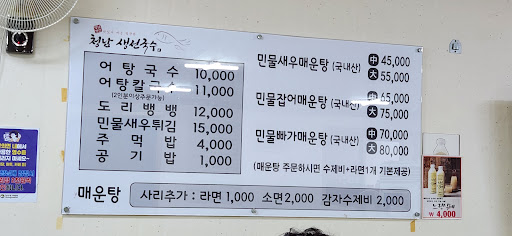 청남 생선국수
어탕국수 10,000
어탕칼국수 11,000
(2인분이상주문가능)
도리뱅뱅 12,000
민물새우튀김 15,000
주먹밥 4,000
공기밥 1,000
민물새우매운탕 (국내산) 中 45,000
大 55,000
민물잡어매운탕 (국내산) 中 65,000
大 75,000
민물빠가매운탕 (국내산) 中 70,000
大 80,000
(매운탕 주문하시면 수제비+라면1개 기본제공)
매운탕 사리추가 : 라면 1,000 소면 2,000 감자수제비 2,000
₩ 4,000